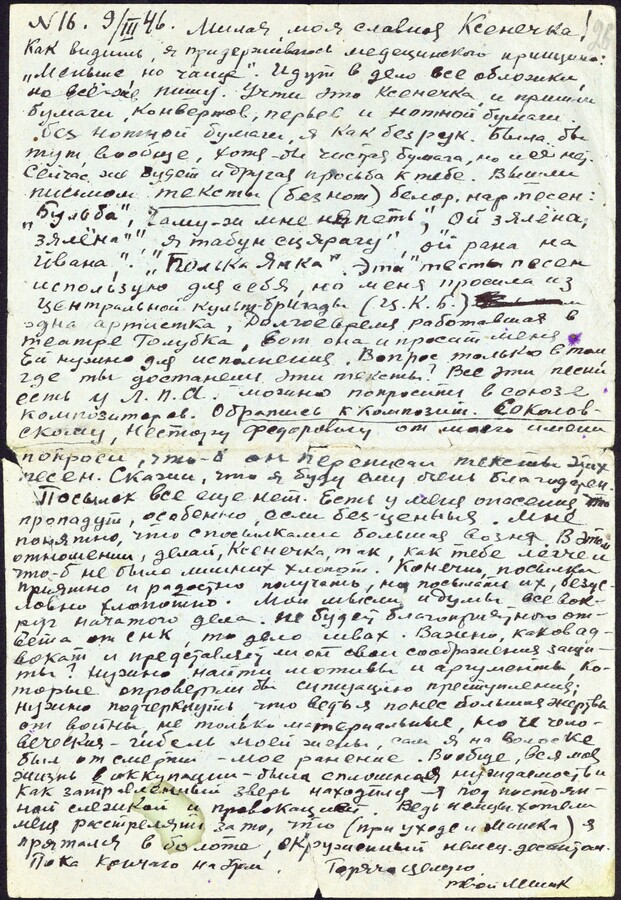 N16. 9/III 46. Милая, моя славная Ксенечка!
26
Как видишь, я придерживаюсь медецинского принципа:
„Меньше, но чаще". Идут в дело все обложки,
но всё-же пишу. Учти это Ксенечка, и пришли
бумаги, конвертов, перьев и нотной бумаги.
Без нотной бумаги, я как без рук. Была бы
тут, вообще, хотя-бы чистая бумага, но и её нет.
Сейчас же будет и другая просьба к тебе. Вышли
письмом тексты (без нот) белор. нар. песен:
„Бульба", „Чаму-ж мне не петь", „Ой зялёна,
зялёна", „Я табун сцярагу", „Ой рана на
Ивана". „Полька Янка". Эти тексты песен
использую для себя, но меня просила из
Центральной культ-бригады (Ц.К.Б.)
одна артистка, долгое время работавшая в
театре Голубка, вот она и просит меня.
Ей нужно для исполнения. Вопрос только в том
где ты достанешь эти тексты? Все эти песни
есть у Л.П.А. можно попросить в союзе
композиторов. Обратись к композит. Соколов-
скому, Нестору Федоровичу от моего имени
попроси, что-б он переписал тексты этих
песен. Скажи, что я буду ему очень благодарен.
Посылок все еще нет. Есть у меня опасения что
пропадут, особенно, если без-ценныя. Мне
понятно, что с посылками большая возня. В этом
отношении, делай, Ксенечка, так, как тебе легче и
что-б не было лишних хлопот. Конечно, посылки
приятно и радостно получать, но посылать их, безус-
ловно хлопотно. Мои мысли и думы все вок-
руг начатого дела. Не будет благоприятного от-
вета от СНК, то дело швах. Важно, каков ад-
вокат и представляет ли он свои соображения защи-
ты? Нужно найти мотивы и аргументы, ко-
торые опровергли бы ситуацию преступления;
нужно подчеркнуть что ведь я понес большия жертвы
от войны, не только материальные, но и чело-
веческия - гибель моей жены, сам я на волоске
был от смерти - мое ранение. Вообще, вся моя
жизнь в оккупации - была сплошная
как затравленный зверь находился я под постоян-
ной слежкой и провокацией. Ведь немцы хотели
меня расстрелять за то, что (при уходе из Минска) я
прятался в болоте, окруженный немец. десантом.
Пока кончаю на этом. Горячо целую.
твой